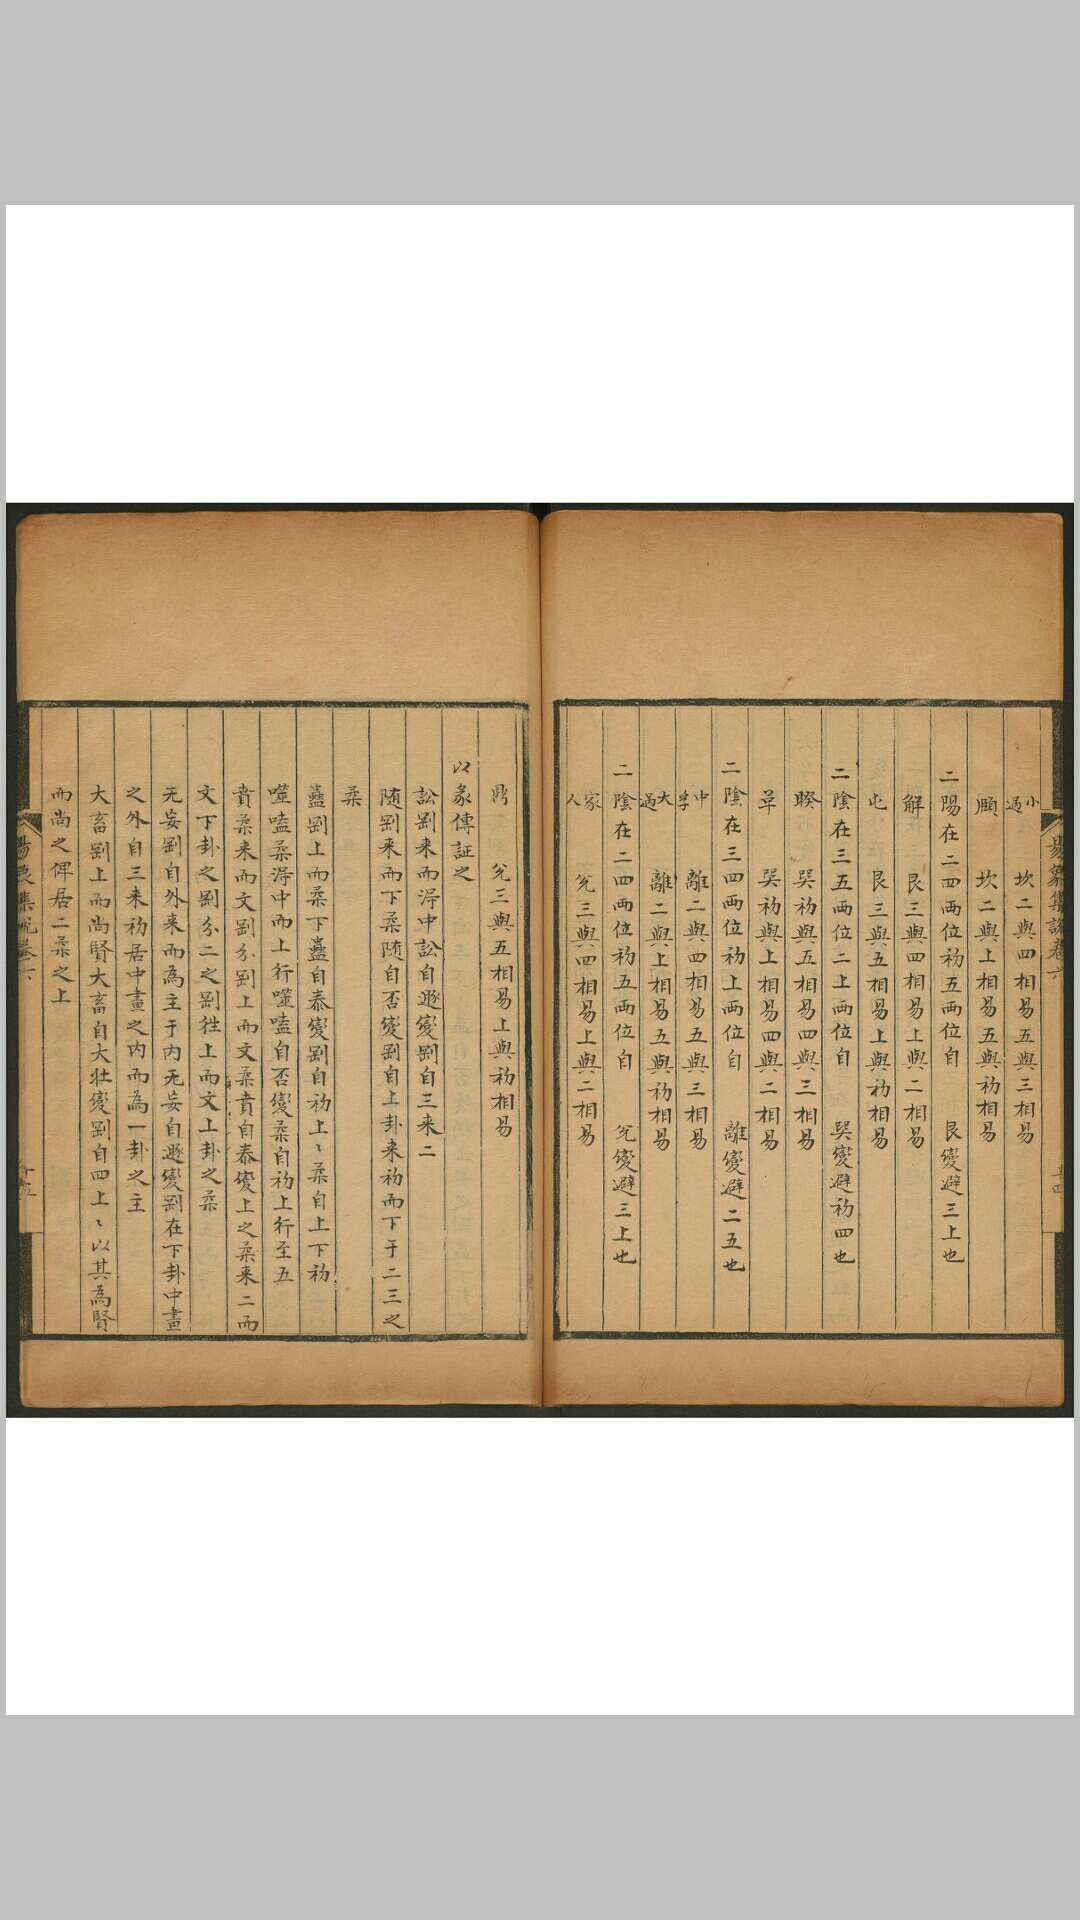 易象集說卷六
小過　坎二與四相易五與三相易
頤　坎二與上相易五與初相易
二陽在二四兩位初五兩位自　艮變避三上也
解　艮三與四相易上與二相易
屯　艮三與五相易上與初相易
二陰在三五兩位二上兩位自　巽變避初四也
睽　巽初與五相易四與三相易
革　巽初與上相易四與二相易
二陰在三四兩位初上兩位自　離變避二五也
中孚　離二與四相易五與三相易
大過　離二與上相易五與初相易
二陰在二四兩位初五兩位自　兊變避三上也
家人　兊三與四相易上與二相易
鼎　兊三與五相易上與初相易
以彖傳証之
訟剛来而淂中訟自遯變剛自三来二
随剛来而下柔随自否變剛自上卦来初而下于二三之
柔
蠱剛上而柔下蠱自泰變剛自初上〻柔自上下初
噬嗑柔淂中而上行噬嗑自否變柔自初上行至五
賁柔来而文剛分剛上而文柔賁自泰變上之柔来二而
文下卦之剛分二之剛徃上而文上卦之柔
无妄剛自外来而為主于内无妄自遯變剛在下卦中畫
之外自三来初居中畫之内而為一卦之主
大畜剛上而尚賢大畜自大壮變剛自四上〻以其為賢
而尚之俾居二柔之上
易象集說卷六